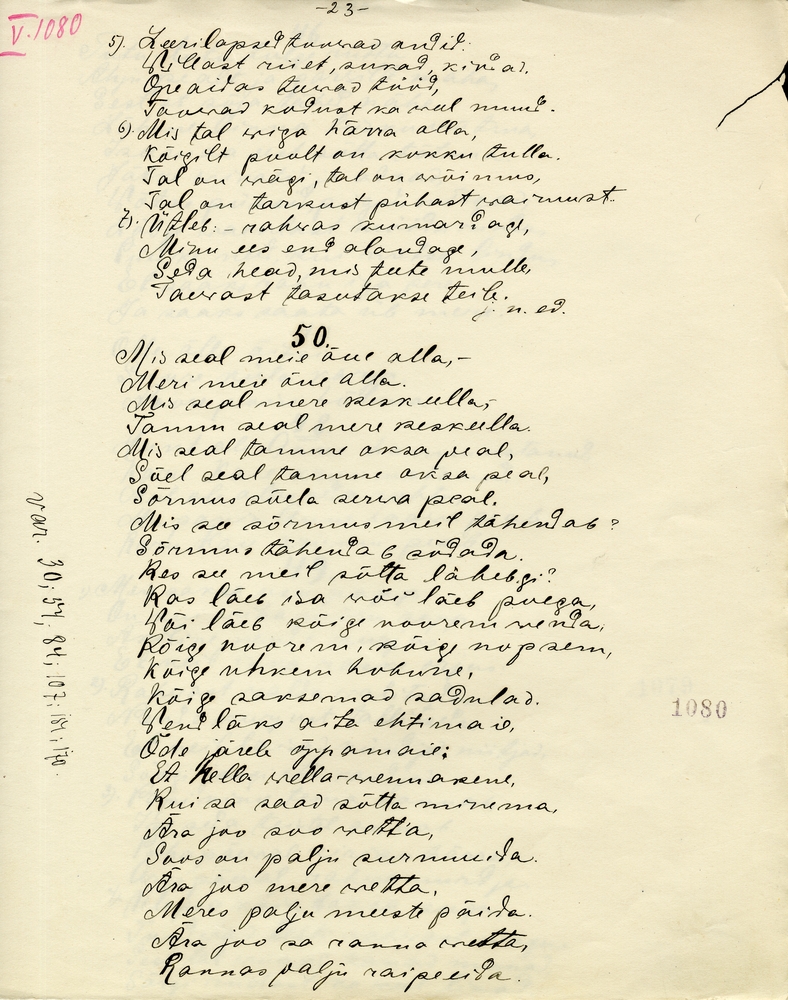 -23-
V.1080
5). Leerilapsed toowad andid:
Willast riiet, sukad, kindad.
Opeaidas teewad tööd,
Toowad kodust ka weel muud.
6). Mis tal wiga härra olla,
Kõigilt poolt on kokku tulla.
Tal on wägi, tal on wõimus,
Tal on tarkust pühast waimust.
7). Ütleb: - rahwas kumardage,
Minu ees end alandage,
Seda head, mis teete mulle,
Taewast tasutakse teile.
j. n. ed.
50.
Mis seal meie õue alla, -
Meri meie õue alla.
Mis seal mere keskeella, -
Tamm seal mere keskeella.
Mis seal tamme oksa peal,
Sõel seal tamme oksa peal,
Sõrmus sõela serwa peal.
Mis see sõrmus meil tähendab?
Sõrmus tähendab sõdada.
Kes see meil sõtta lähebgi?
Kas läeb isa wõi läeb poega,
Wõi läeb kõige noorem wenda,
Kõige noorem, kõige nopsem,
Kõige uhkem hobune,
Kõige saksemad sadulad.
Wend läks aita ehtimaie,
Õde järele õppamaie:
Et hella wella-wennakene,
Kui sa saad sõtta minema,
Ära joo soo wett'a,
Soos on palju surnuuida.
Ära joo mere wetta,
Meres palju meeste päida.
Ära joo sa ranna wetta,
Rannas palju raipeeida.
var. 30; 57; 84; 107; 151; 170.
1080